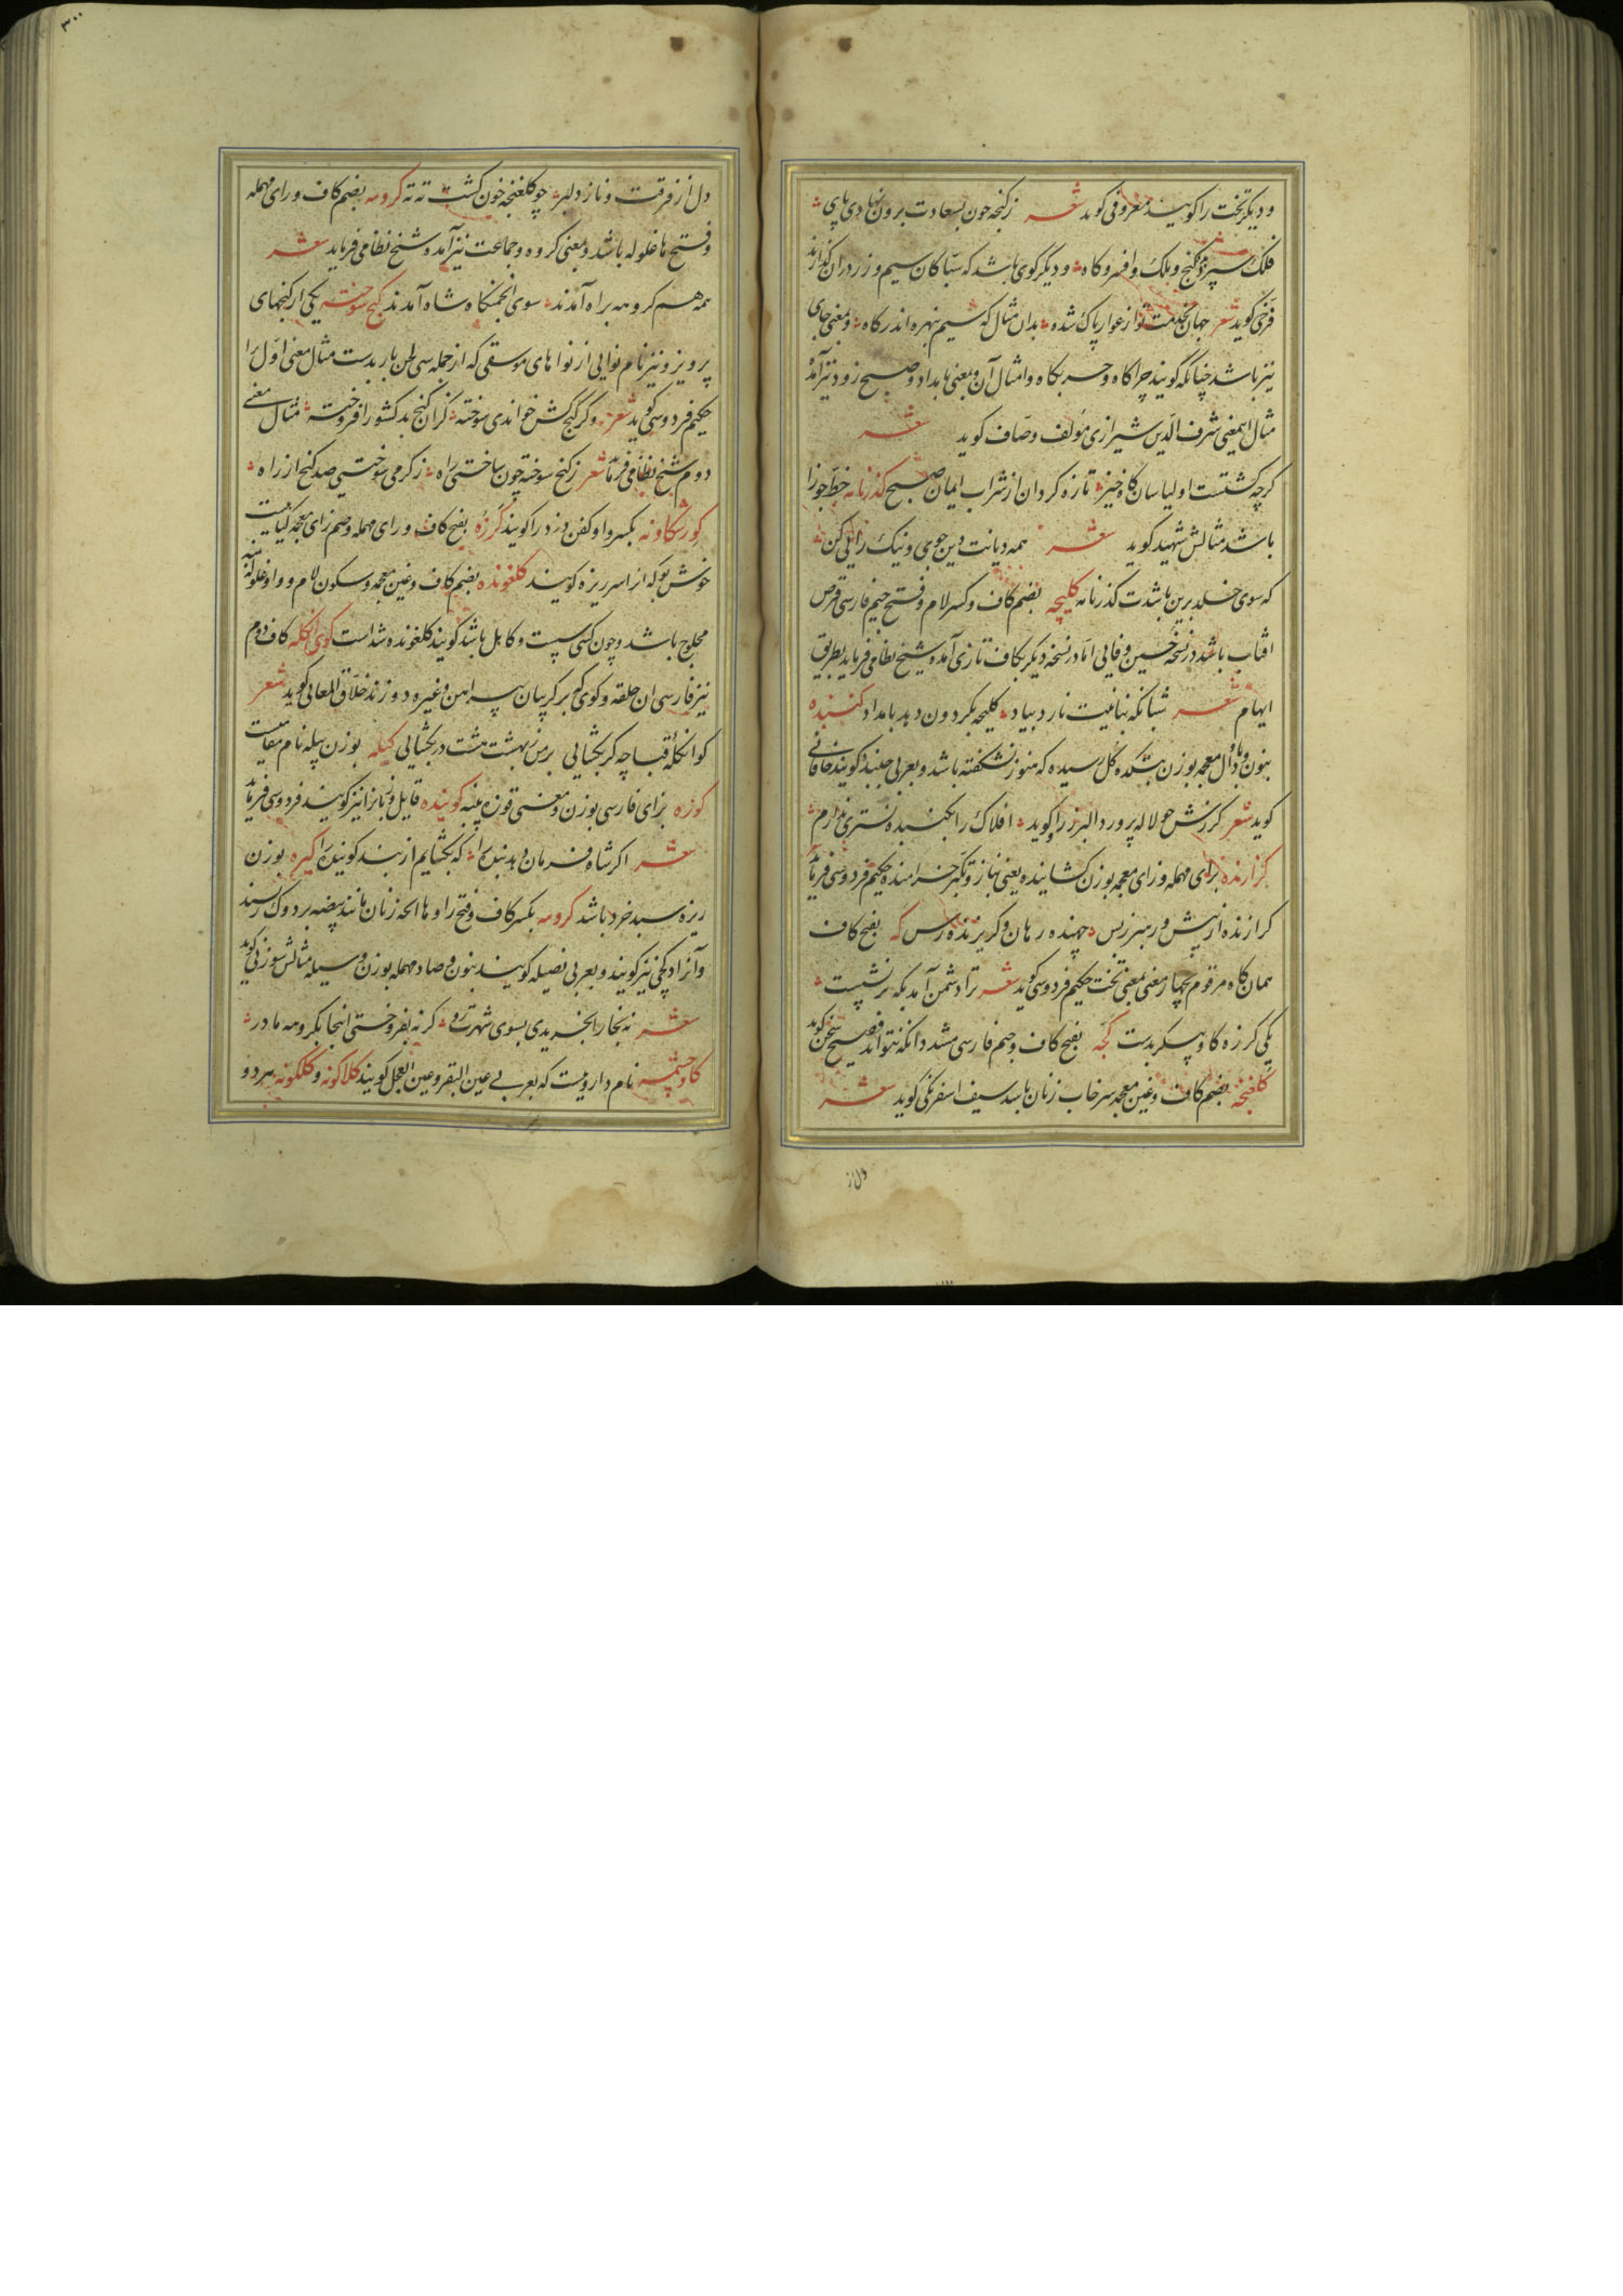 و دیکر تخت را کویند معروفی کوید شعر زکنجه چون بسعادت برون نهادی پای
فلک سپرد کنج و ملک و افسر و کاه و دیکر کوی باشد که سباکان سیم و زر دران کدازند
فرخی کوید شعر جهان بخدمت تو از عوار پاک شده بدان مثال که سیم نبهره اندر کاه و بمعنی جای
نیز باشد چنانکه کویند چراکاه و خربکاه و امثال آن و بمعنی بامداد و صبح زود نیز آمده
مثال اینمعنی شرف الدین شیرازی مؤلف وصاف کوید شعر
کرچه کشتست اولیاسان کاه خیز تازه کردان از شراب ایمان صبح کذرنامه خط جواز
باشد مثالش شهید کوید شعر همه دیانت و دین جوی و نیک رائی کن
که سوی خلد برین باشدت کذرنامه کلیچه بضم کاف و کسر لام و فتح جیم فارسی قرص
افتاب باشد در نسخه حسین وفایی اما در نسخه دیکر بکاف تازی آمده و شیخ نظامی فرماید بطریق
ایهام شعر شبانکه نباتیت نارد بیاد کلیچه بکردون دهد بامداد کنبده
بنون و با و دال معجمه بوزن بتکده کل رسیده که هنوز نشکفته باشد و بعربی جنبذ کویند خاقانی
کوید شعر کرزش چو لاله پرورد البرز را کوید افلاک را بکنبده نسترن برم
کرازنده برای مهمله و زای معجمه بوزن کشاینده یعنی بناز و تکبر خرامنده حکیم فردوسی فرماید
کرازنده از پیش و رهبر ز پس جهنده رهان و کریزنده رس که بفتح کاف
همان کاه مرقوم بچهار معنی بمعنی تخت حکیم فردوسی کوید شعر ترا دشمن آمد بکه بر نشست
یکی کرزه کاو پیکر بدست کجه بفتح کاف و جیم فارسی مشدد انکه نتواند فصیح سخن کوید
کلغنچه بضم کاف و غین معجمه سرخاب زنان باشد سیف اسفرنکی کوید شعر
دل از
۳۰۰
دل از فرقت و ناز دلبر چو کلغنچه خون کشت ته ته کروهه بضم کاف و رای مهمله
و فتح ها غلوله باشد و بمعنی کروه و جماعت نیز آمده و شیخ نظامی فرماید شعر
همه هم کروهه براه آمدند سوی انجمنکاه شاه آمدند کنج سوخته یکی از کنجهای
پرویز و نیز نام نوایی از نواهای موسقی که از جمله سی لحن باربدست مثال معنی اول را
حکیم فردوسی کوید شعر دکر کنج کش خواندی سوخته کزان کنج بد کشور افروخته مثال معنی
دوم شیخ نظامی فرماید شعر ز کنج سوخته چون ساختی راه ز کرمی سوختی صد کنج از راه
کورشکاونه بکسر واو کفن دزد را کویند کرزه بفتح کاف و رای مهمله و ضم زای معجمه کیاهیست
خوش بو که از اسرریزه کویند کلغونده بضم کاف و غین معجمه و سکون لام و واو غلوله پنبه
محلوج باشد و چون کسی سست و کاهل باشد کویند کلغونده شداست کوی انکله کاف دوم
نیز فارسی ان حلقه و کوی که بر کریبان پیراهن و غیره دوزند خلاق المعانی کوید شعر
کو انکله قباچه کر بکشایی بر من ز بهشت هشت در بکشایی کیله بوزن پیله نام مقامیست
کوزه بزای فارسی بوزن و معنی قوزه پنبه کوینده قایل و زبانرا نیز کویند فردوسی فرماید
شعر اکر شاه فرمان دهد بنده را که بکشایم از بند کوینده را کیره بوزن
ریزه سبد خرد باشد کروهه بکسر کاف و فتح را و ها انچه زنان مانند بیضه بر دوک رسند
و آنرا دکچی نیز کویند و بعربی نصیله کویند بنون و صاد مهمله بوزن وسیله مثالش سوزنی کوید
شعر نه بخارا بخریدی بسوی شهرت رو کر نه بفروختی انجا بکروهه مادر
کاوچشمه نام داروییست که بعربی عین البقر و عین العجل کویند کلاکونه و کلکونه بهر دو